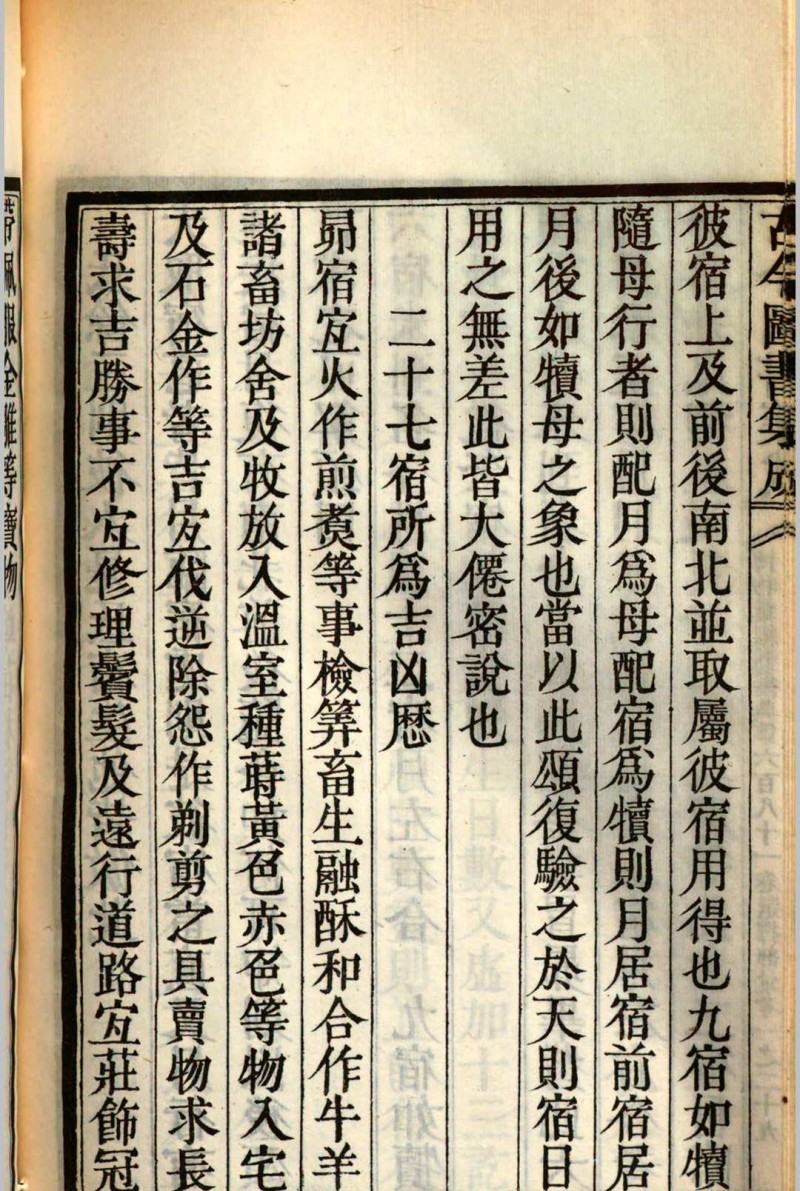 古今圖書集成
彼宿上及前後南北並取屬彼宿用得也九宿如犢
隨母行者則配月爲母配宿爲犢則月居宿前宿居
月後如犢母之象也當以此頌復驗之於天則宿日
用之無差此皆大僊密說也
二十七宿所爲吉凶曆
昴宿宐火作煎煑等事檢筭畜生融酥和合作牛羊
諸畜坊舍及牧放入溫室種蒔黃色赤色等物入宅
及石金作等吉宐伐逆除怨作剃剪之具賣物求長
壽求吉勝事不宐修理鬢髮及遠行道路宐莊飾冠
帶佩服金雖等寶物